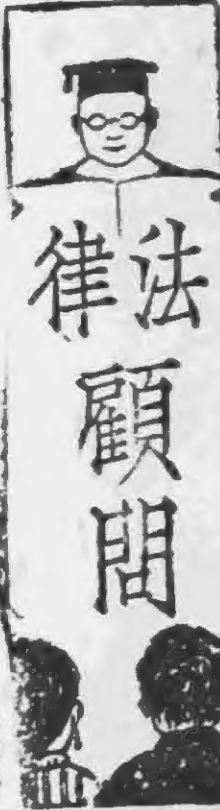 法律
顧
問